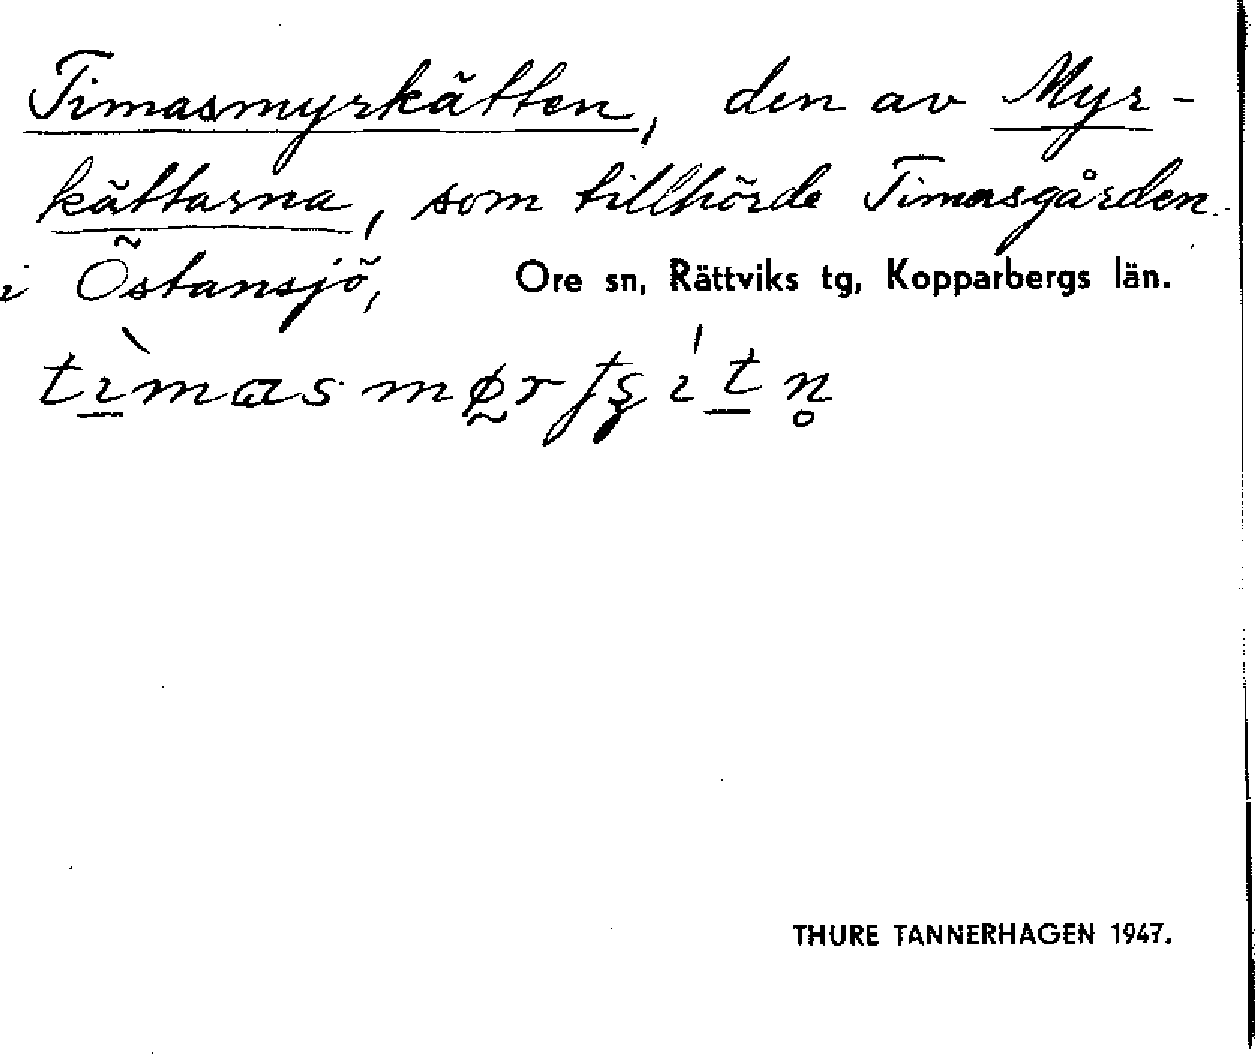 Timasmyrkätten, den av Myr-
kättarna, som tillhörde Timasgården
i Östansjö, Ore sn, Rättviks tg, Kopparbergs län.
THURE TANNERHAGEN 1947.